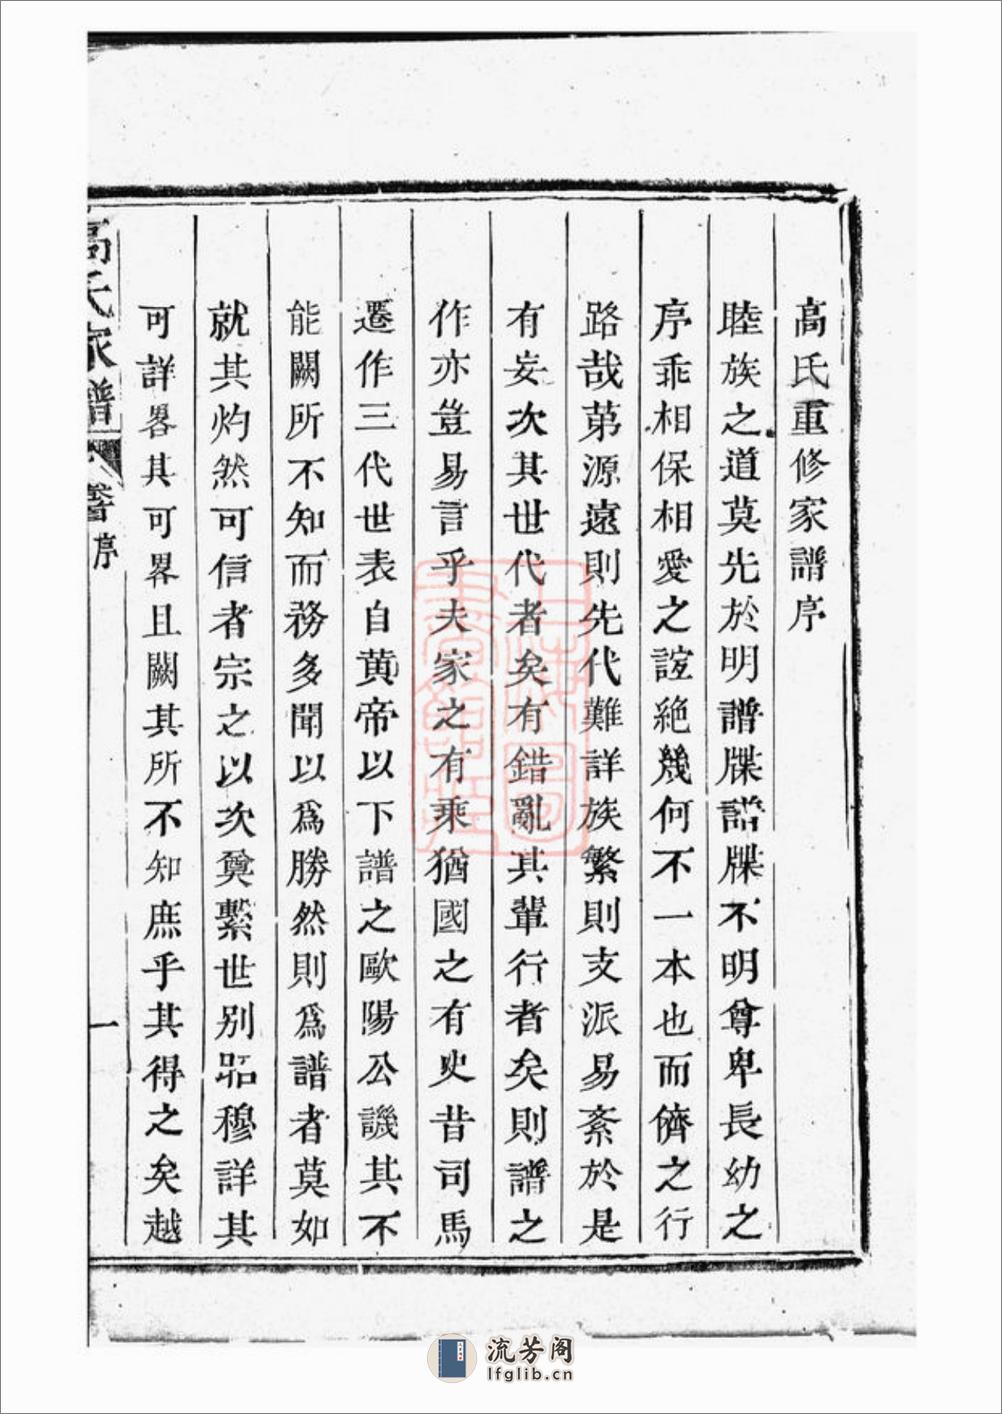 高氏重修家譜序
睦族之道莫先於明譜牒譜牒不明尊卑長幼之
序乖相保相愛之誼絶幾何不一本也而儕之行
路哉苐源遠則先代難詳族繁則支派易紊於是
有妄次其世代者矣有錯亂其輩行者矣則譜之
作亦豈易言乎夫家之有乘猶國之有史昔司馬
遷作三代世表自黄帝以下譜之歐陽公譏其不
能闕所不知而務多聞以爲勝然則爲譜者莫如
就其灼然可信者宗之以次奠繫世别昭穆詳其
可詳畧其可畧且闕其所不知庶乎其得之矣越
高氏家譜
序
一
流芳阁
lfglib.cn